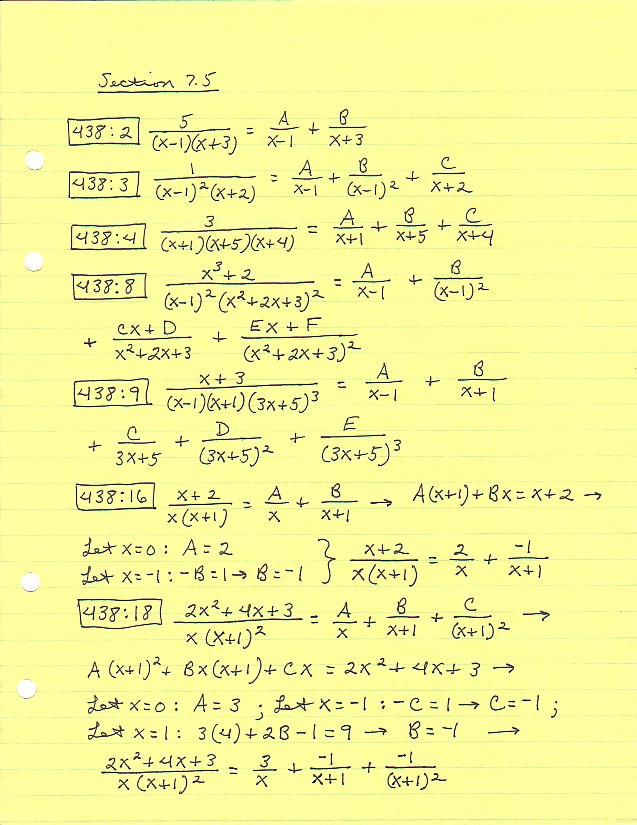 Section 7.5
438:2 5/((x-1)(x+3)) = A/(x-1) + B/(x+3)
438:3 1/((x-1)²(x+2)) = A/(x-1) + B/(x-1)² + C/(x+2)
438:4 3/((x+1)(x+5)(x+4)) = A/(x+1) + B/(x+5) + C/(x+4)
438:8 (x³+2)/((x-1)²(x²+2x+3)²) = A/(x-1) + B/(x-1)²
+ (Cx+D)/(x²+2x+3) + (Ex+F)/(x²+2x+3)²
438:9 (x+3)/((x-1)(x+1)(3x+5)³) = A/(x-1) + B/(x+1)
+ C/(3x+5) + D/(3x+5)² + E/(3x+5)³
438:16 (x+2)/(x(x+1)) = A/x + B/(x+1) → A(x+1)+Bx=x+2 →
Let x=0: A=2 } (x+2)/(x(x+1)) = 2/x + -1/(x+1)
Let x=-1: -B=1 → B=-1
438:18 (2x²+4x+3)/(x(x+1)²) = A/x + B/(x+1) + C/(x+1)² →
A(x+1)²+ Bx(x+1)+Cx = 2x²+4x+3 →
Let x=0: A=3 ; Let x=-1: -C=1 → C=-1;
Let x=1: 3(4)+2B-1=9 → B=-1 →
(2x²+4x+3)/(x(x+1)²) = 3/x + -1/(x+1) + -1/(x+1)²